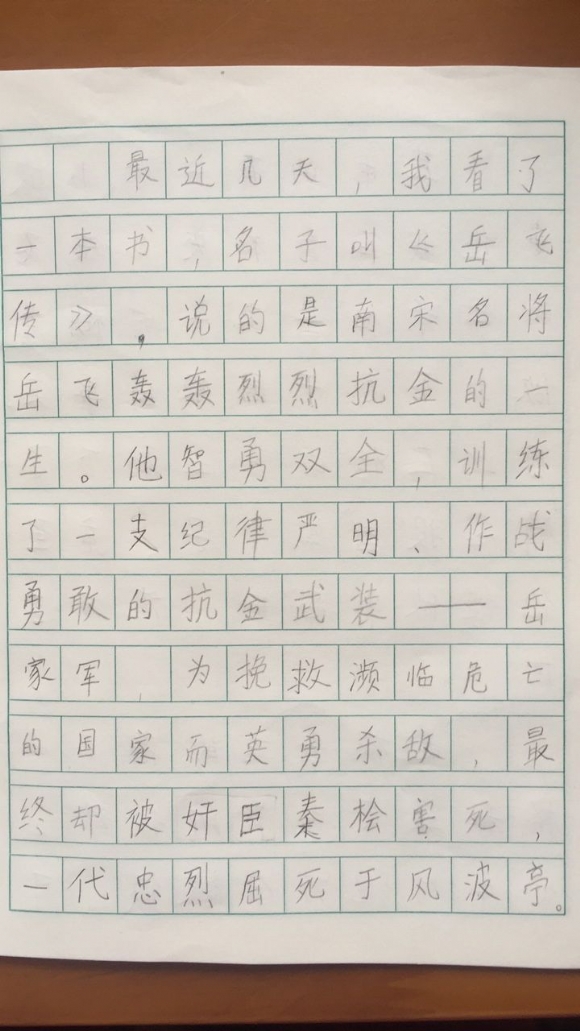 最近几天，我看了
一本书，名子叫《岳飞
传》，说的是南宋名将
岳飞轰轰烈烈抗金的一
生。他智勇双全，训练
了一支纪律严明、作战
勇敢的抗金武装——岳
家军，为挽救濒临危亡
的国家而英勇杀敌，最
终却被奸臣秦桧害死，
一代忠烈屈死于风波亭。